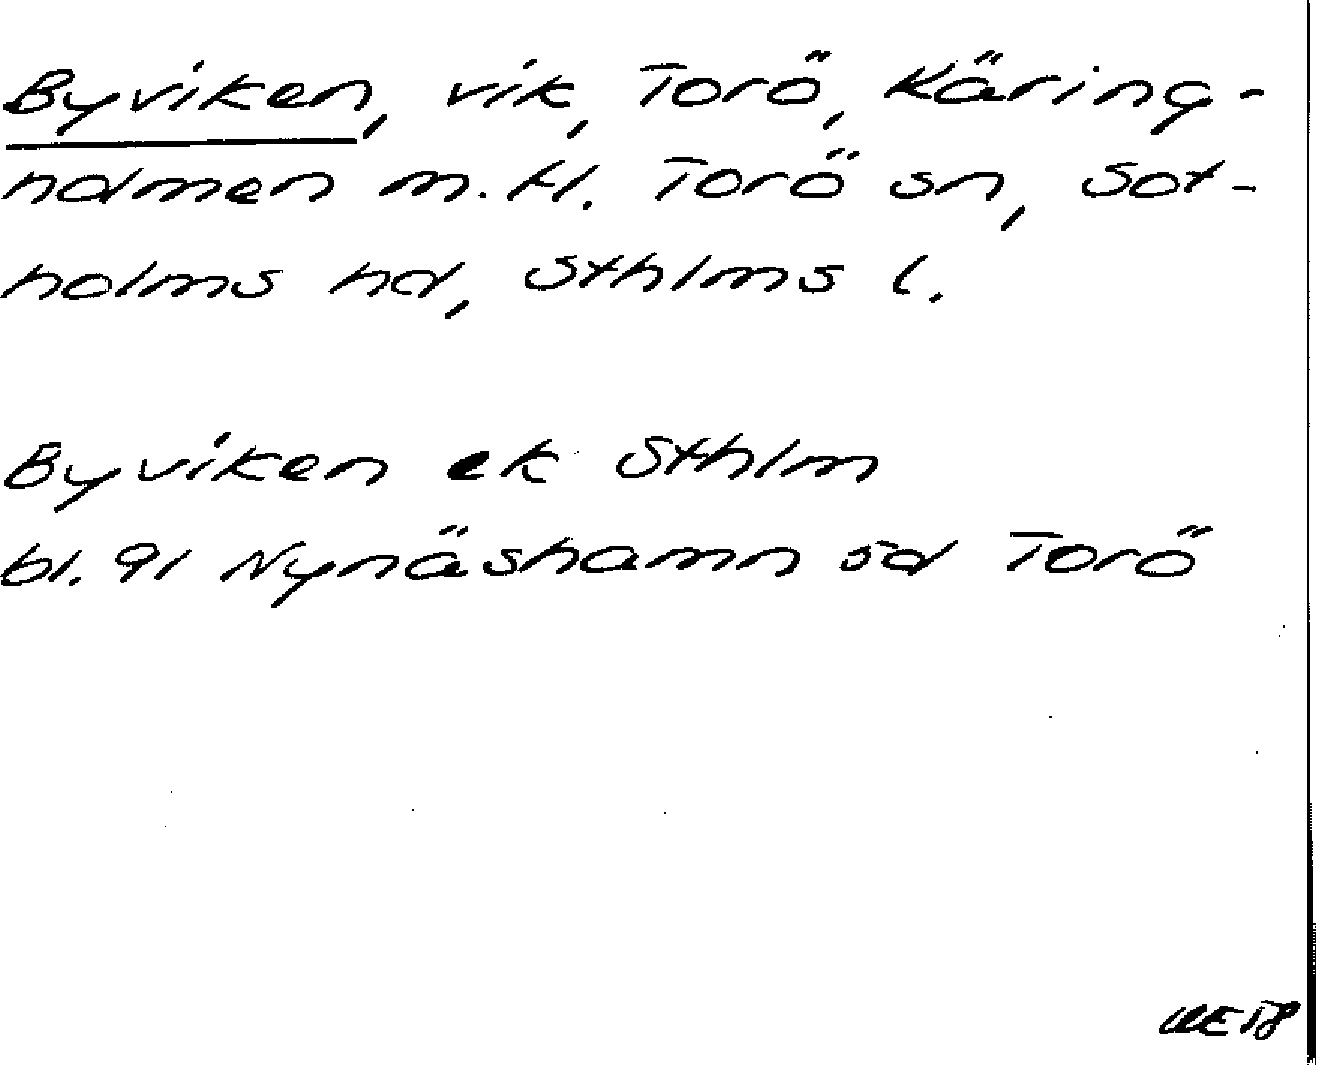 Byviken, vik, Torö, Käring-
holmen m.fl. Torö sn, Sot-
holms hd, Sthlms l.
Byviken ek Sthlm
bl. 91 Nynäshamn sd Torö